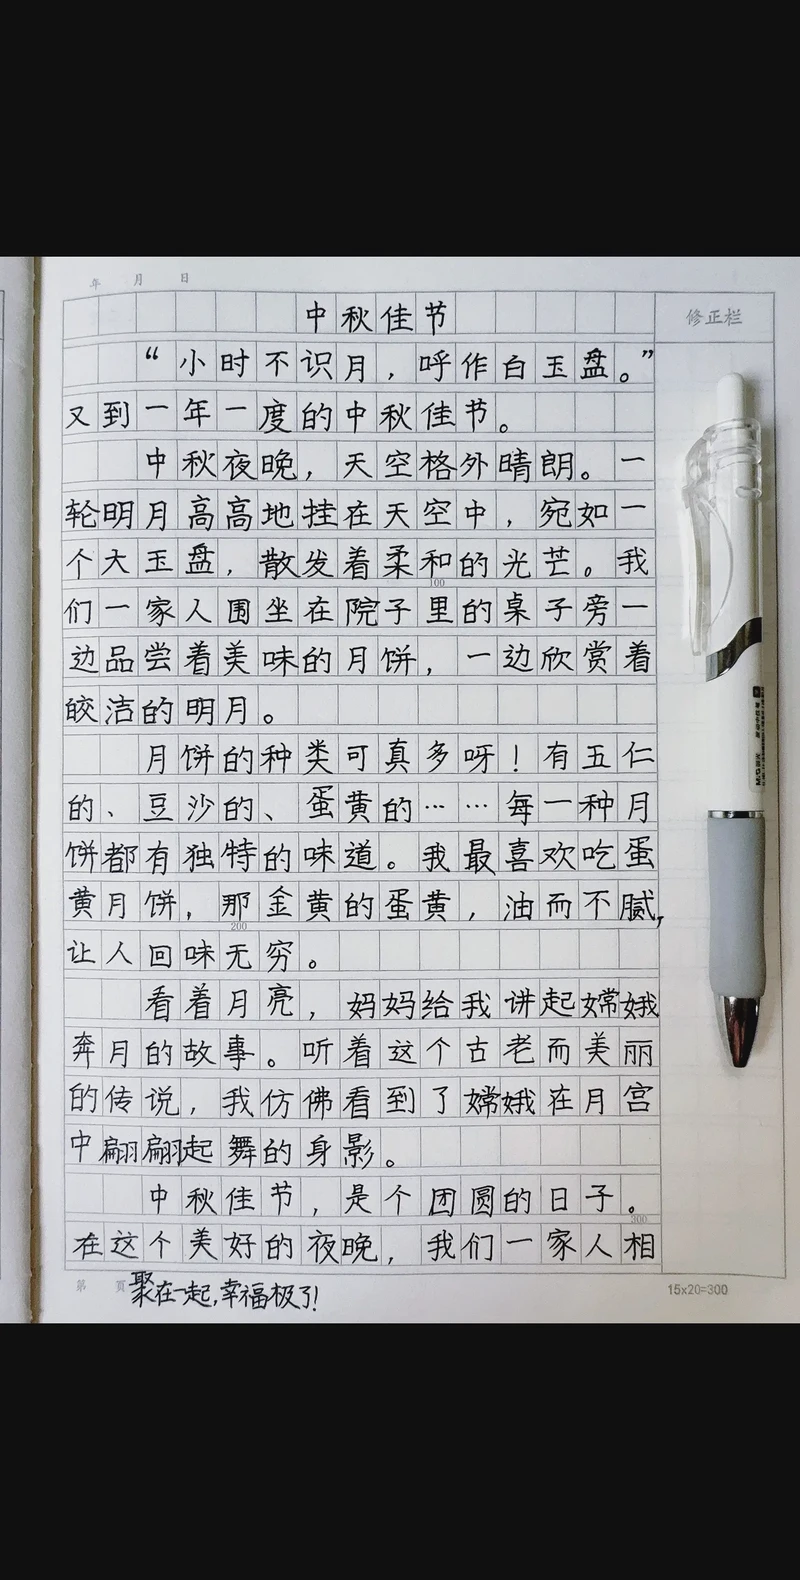 年 月 日
中秋佳节
修正栏
“小时不识月，呼作白玉盘。”
又到一年一度的中秋佳节。
中秋夜晚，天空格外晴朗。一
轮明月高高地挂在天空中，宛如一
个大玉盘，散发着柔和的光芒。我
100
们一家人围坐在院子里的桌子旁一
边品尝着美味的月饼，一边欣赏着
皎洁的明月。
月饼的种类可真多呀！有五仁
的、豆沙的、蛋黄的……每一种月
饼都有独特的味道。我最喜欢吃蛋
黄月饼，那金黄的蛋黄，油而不腻，
200
让人回味无穷。
看着月亮，妈妈给我讲起嫦娥
奔月的故事。听着这个古老而美丽
的传说，我仿佛看到了嫦娥在月宫
中翩翩起舞的身影。
中秋佳节，是个团圆的日子。
300
在这个美好的夜晚，我们一家人相
第 页
聚在一起，幸福极了！
15x20=300
M&G